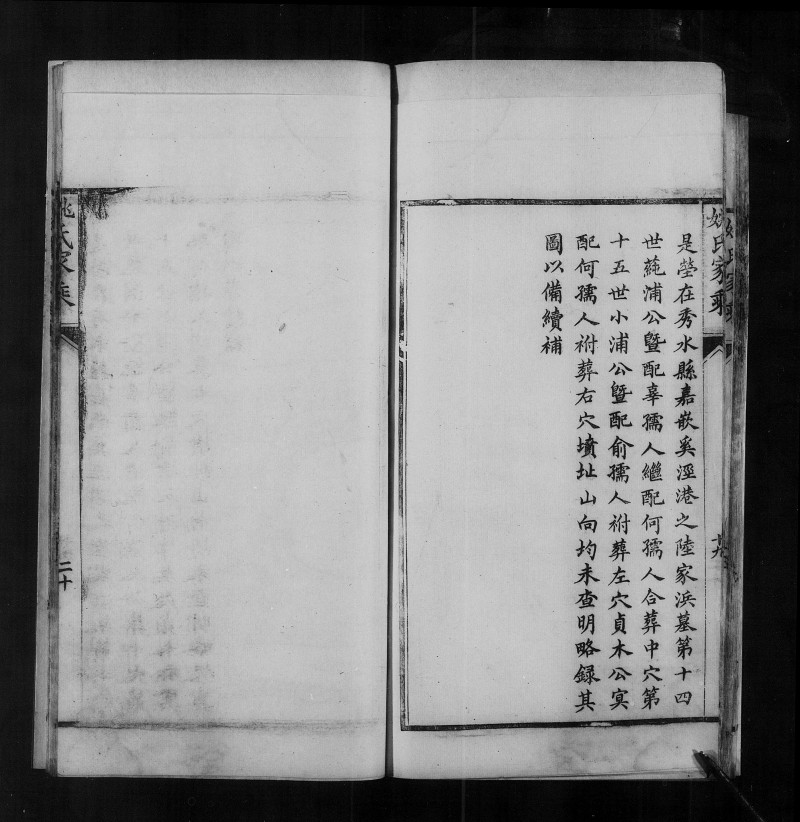 姚氏家乘
是塋在秀水縣嘉嵌奚涇港之陸家浜墓第十四
世蒓浦公暨配辜孺人繼配何孺人合葬中穴第
十五世小浦公暨配俞孺人祔葬左穴貞木公寞
配何孺人祔葬右穴墳址山向均未查明略録其
圖以備續補
十九
姚氏家乘
二十